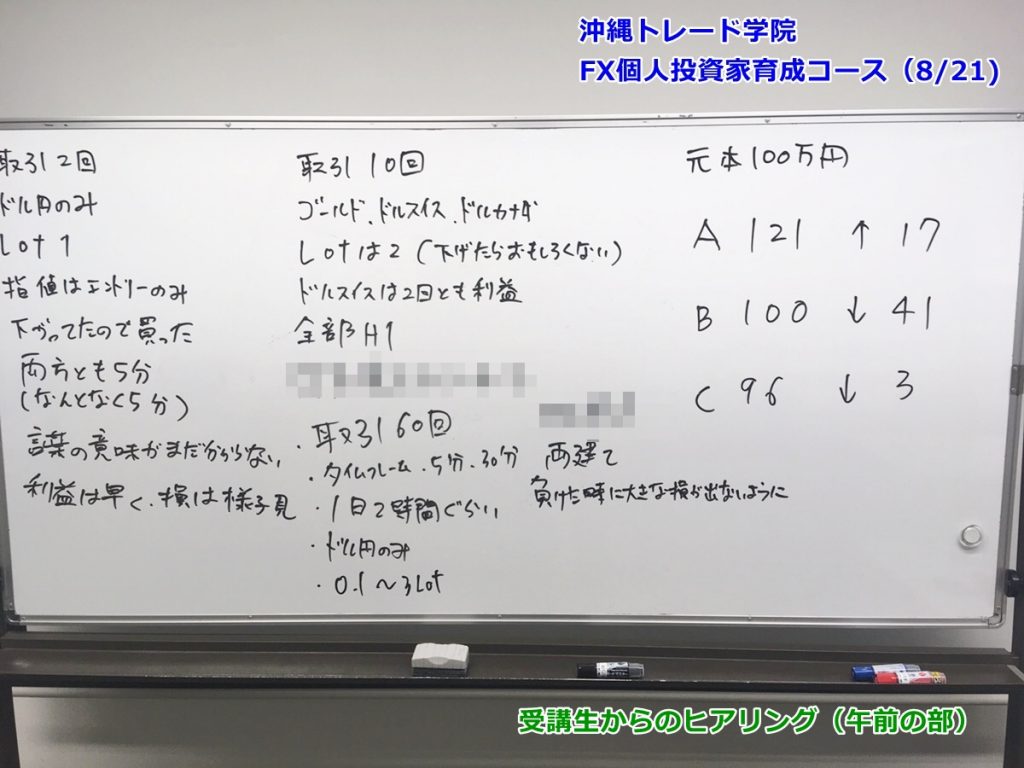 沖縄トレード学院
FX個人投資家育成コース（8/21)
取引2回
ドル円のみ
Lot 1
指値はエントリーのみ
下がってたので買った
両方とも5分
(なんとなく5分)
言葉の意味がまだ分からない
利益は早く、損は様子見
取引10回
ゴールド、ドルスイス、ドルカナダ
Lotは2(下げたらおもしろくない)
ドルスイスは2回とも利益
全部H1
・取引60回
・タイムフレーム・5分・30分
・1日2時間ぐらい
・ドル円のみ
・0.1～3Lot
両建て
負けた時に大きな損が出ないように
元本100万円
A 121 ↑ 17
B 100 ↓ 41
C 96 ↓ 3
受講生からのヒアリング（午前の部）